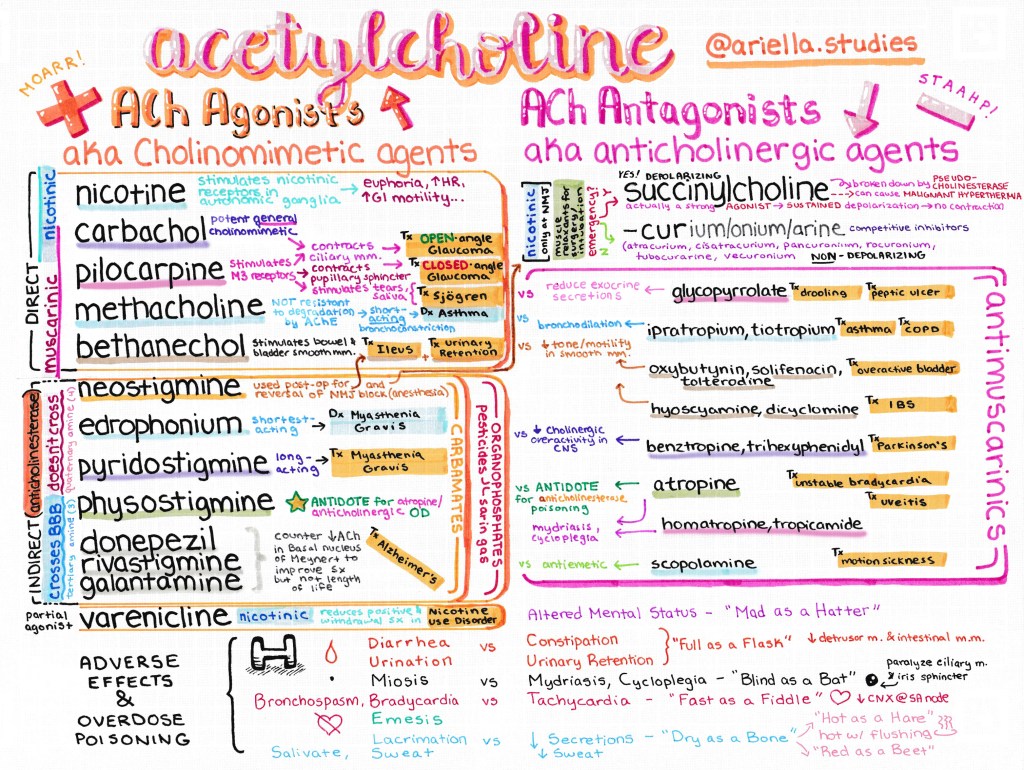 acetylcholine
@ariella.studies
MOARR!
ACh Agonists
aka Cholinomimetic agents
STAAHP!
ACh Antagonists
aka anticholinergic agents
DIRECT
nicotinic
muscarinic
nicotine
stimulates nicotinic
receptors in
autonomic ganglia
euphoria, ↑HR,
↑GI motility...
carbachol
potent general
cholinomimetic
pilocarpine
stimulates
M3 receptors
contracts
ciliary mm.
contracts
pupillary sphincter
stimulates tears,
saliva
Tx OPEN-angle
Glaucoma
Tx CLOSED-angle
Glaucoma
Tx Sjögren
methacholine
NOT resistant
to degradation
by AChE
short-
acting
bronchoconstriction
Dx Asthma
bethanechol
stimulates bowel &
bladder smooth mm.
Tx Ileus
+
Tx Urinary
Retention
INDIRECT (anticholinesterase)
doesnt cross
quaternary amine (4)
crosses BBB
tertiary amine (3)
neostigmine
used post-op for and
reversal of NMJ block (anesthesia)
edrophonium
shortest-
acting
Dx Myasthenia
Gravis
pyridostigmine
long-
acting
Tx Myasthenia
Gravis
physostigmine
ANTIDOTE for atropine/
anticholinergic OD
donepezil
rivastigmine
galantamine
counter ↓ACh
in Basal nucleus
of Meynert to
improve sx
but not length
of life
Tx Alzheimer's
CARBAMATES
ORGANOPHOSPHATES
pesticides, sarin gas
partial
agonist
varenicline
nicotinic
reduces positive &
withdrawal sx in
Nicotine
use Disorder
nicotinic
only at NMJ
muscle
relaxants for
surgery/
intubation
emergency?
Y
N
YES! DEPOLARIZING
succinylcholine
broken down by PSEUDO-
CHOLINESTERASE
can cause MALIGNANT HYPERTHERMIA
actually a strong AGONIST → SUSTAINED depolarization → no contraction
-curium/onium/arine
competitive inhibitors
(atracurium, cisatracurium, pancuronium, rocuronium,
tubocurarine, vecuronium) NON-DEPOLARIZING
antimuscarinics
vs reduce exocrine
secretions
glycopyrrolate
Tx drooling
Tx peptic ulcer
vs bronchodilation
ipratropium, tiotropium
Tx asthma
Tx COPD
vs ↓ tone/motility
in smooth mm.
oxybutynin, solifenacin,
tolterodine
Tx overactive bladder
hyoscyamine, dicyclomine
Tx IBS
vs ↓ cholinergic
overactivity in
CNS
benztropine, trihexyphenidyl
Tx Parkinson's
vs ANTIDOTE
for anticholinesterase
poisoning
atropine
Tx unstable bradycardia
Tx uveitis
mydriasis,
cycloplegia
homatropine, tropicamide
vs antiemetic
scopolamine
Tx motion sickness
ADVERSE
EFFECTS
&
OVERDOSE
POISONING
Altered Mental Status - "Mad as a Hatter"
Diarrhea vs Constipation
Urination Urinary Retention
"Full as a Flask" ↓ detrusor m. & intestinal m.m.
Miosis vs Mydriasis, Cycloplegia - "Blind as a Bat"
paralyze ciliary m.
& iris sphincter
Bronchospasm, Bradycardia vs Tachycardia - "Fast as a Fiddle" ↓CNX@SA node
Emesis
Lacrimation vs ↓ Secretions - "Dry as a Bone"
Salivate, Sweat ↓ Sweat
"Hot as a Hare"
hot w/ flushing
"Red as a Beet"